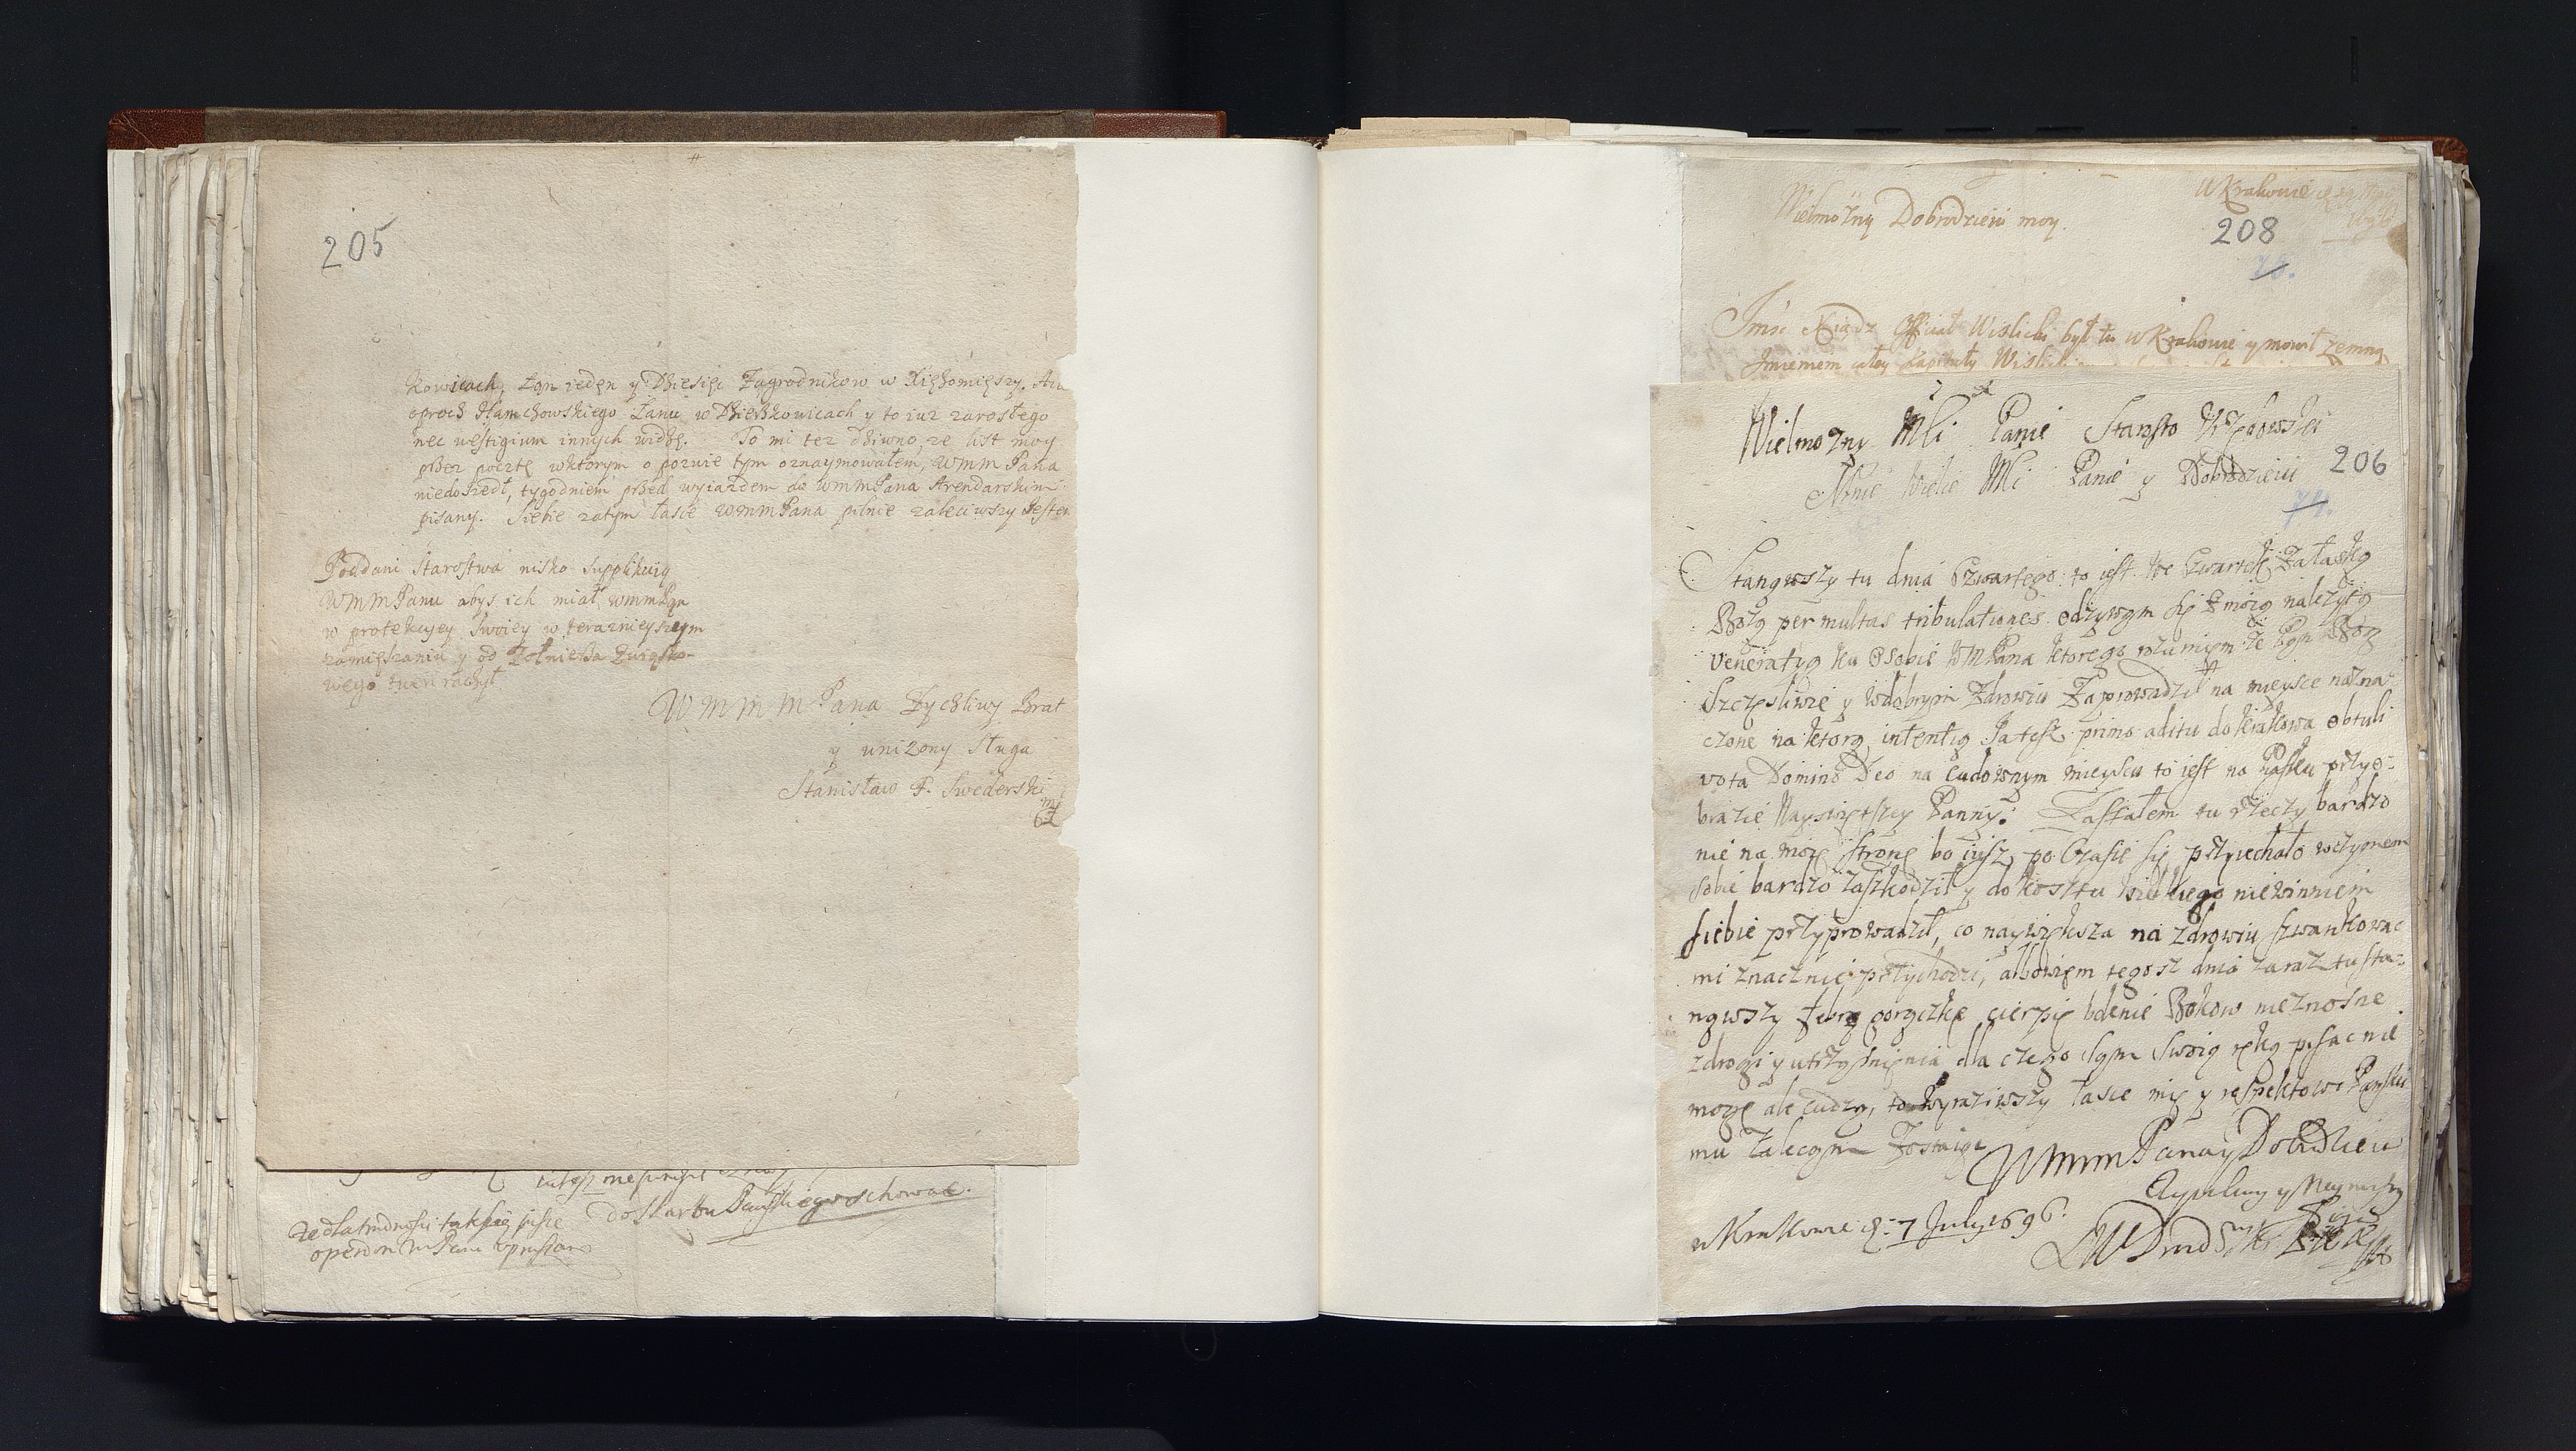 205
kowicach, Łan ieden y Dziesięc Zagrodnikow w Xiężomięszy. Au
oprocz Hamchowskiego Łanu w Dzierzkowicach y to iuz zarosłego
nec vestigium innych widzę. To mi tez dziwno, ze list moy
przez pocztę wktorym o pozwie tym oznaymowałem, WMM Pana
niedoszedł, tygodniem przed wyiazdem do WMMPana Arendarskim
pisany. Siebie zatym łasce WMMPana pilnie zaleciwszy Jestem
Poddani Starostwa nisko supplikuią
WMMPanu abys ich miał WMMPan
w protekcyey swoiey w teraznieyszym
zamięszaniu y od Zołnierza Związko-
wego
WMMMPana Zyczliwy Brat
y unizony Sługa
Stanisław P. Swederski
mp
ze dla trudnosci tak się pisze
do Skarbu Panskiego schowac.
W Krakowie
Wielmozny Dobrodzieiu moy.
208
78.
Jmsc Xiądz Officiał Wislicki był tu w Krakowie y mowił zemną
Jmieniem całey Kapituły
Wielmozny Mci Panie Starosto
Mnie Wielce Mci Panie y Dobrodzieiu
206
Stanąwszy tu dnia Czwartego: to iest we Czwartek Załaską
Bozą per multas tribulationes odzywam się zmoią należytą
Veneratyą ku Osobie WMPana ktorego rozumiem ze Pan Bog
Szczesliwie y wdobrym Zdrowiu Zaprowadził na mieysce nazna-
czone na ktorą intentią Ja tesz primo aditu do Krakowa obtuli
vota Domino Deo na Cudownym mieyscu to iest na Piasku przyo-
brazie Nayswiętszey Panny. Zastałem tu rzeczy bardzo
nie na moię stronę bo iusz po Czasie się przyiechało wczymem
sobie bardzo zaszkodził y do kosztu wielkiego niewinniem
siebie przyprowadził, co naywiększa na Zdrowiu szwankowac
mi znacznie przychodzi, albowiem tegosz dnia zaraz tu sta-
nąwszy febrę gorączkę cierpię bolenie Bokow nieznosne
zdrogi y utrzęsnienia dla czego sam swoią ręką pisac nie
mogę ale cudzą, to wyraziwszy łasce mię y respektowi Pansk
mu zalecam Zostaię
WMMM Pana y Dobrodzieia
Zyczliwy y Naynizszy
w Krakowie d. 7 July 1696.